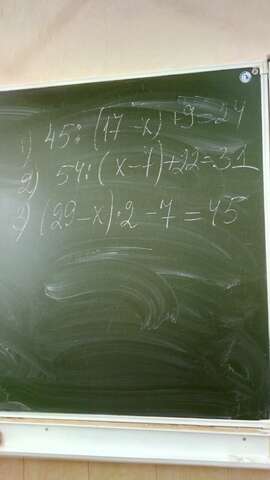 1) 45 : (17 - x) + 9 = 24
2) 54 : (x - 7) + 22 = 31
3) (29 - x) · 2 - 7 = 45